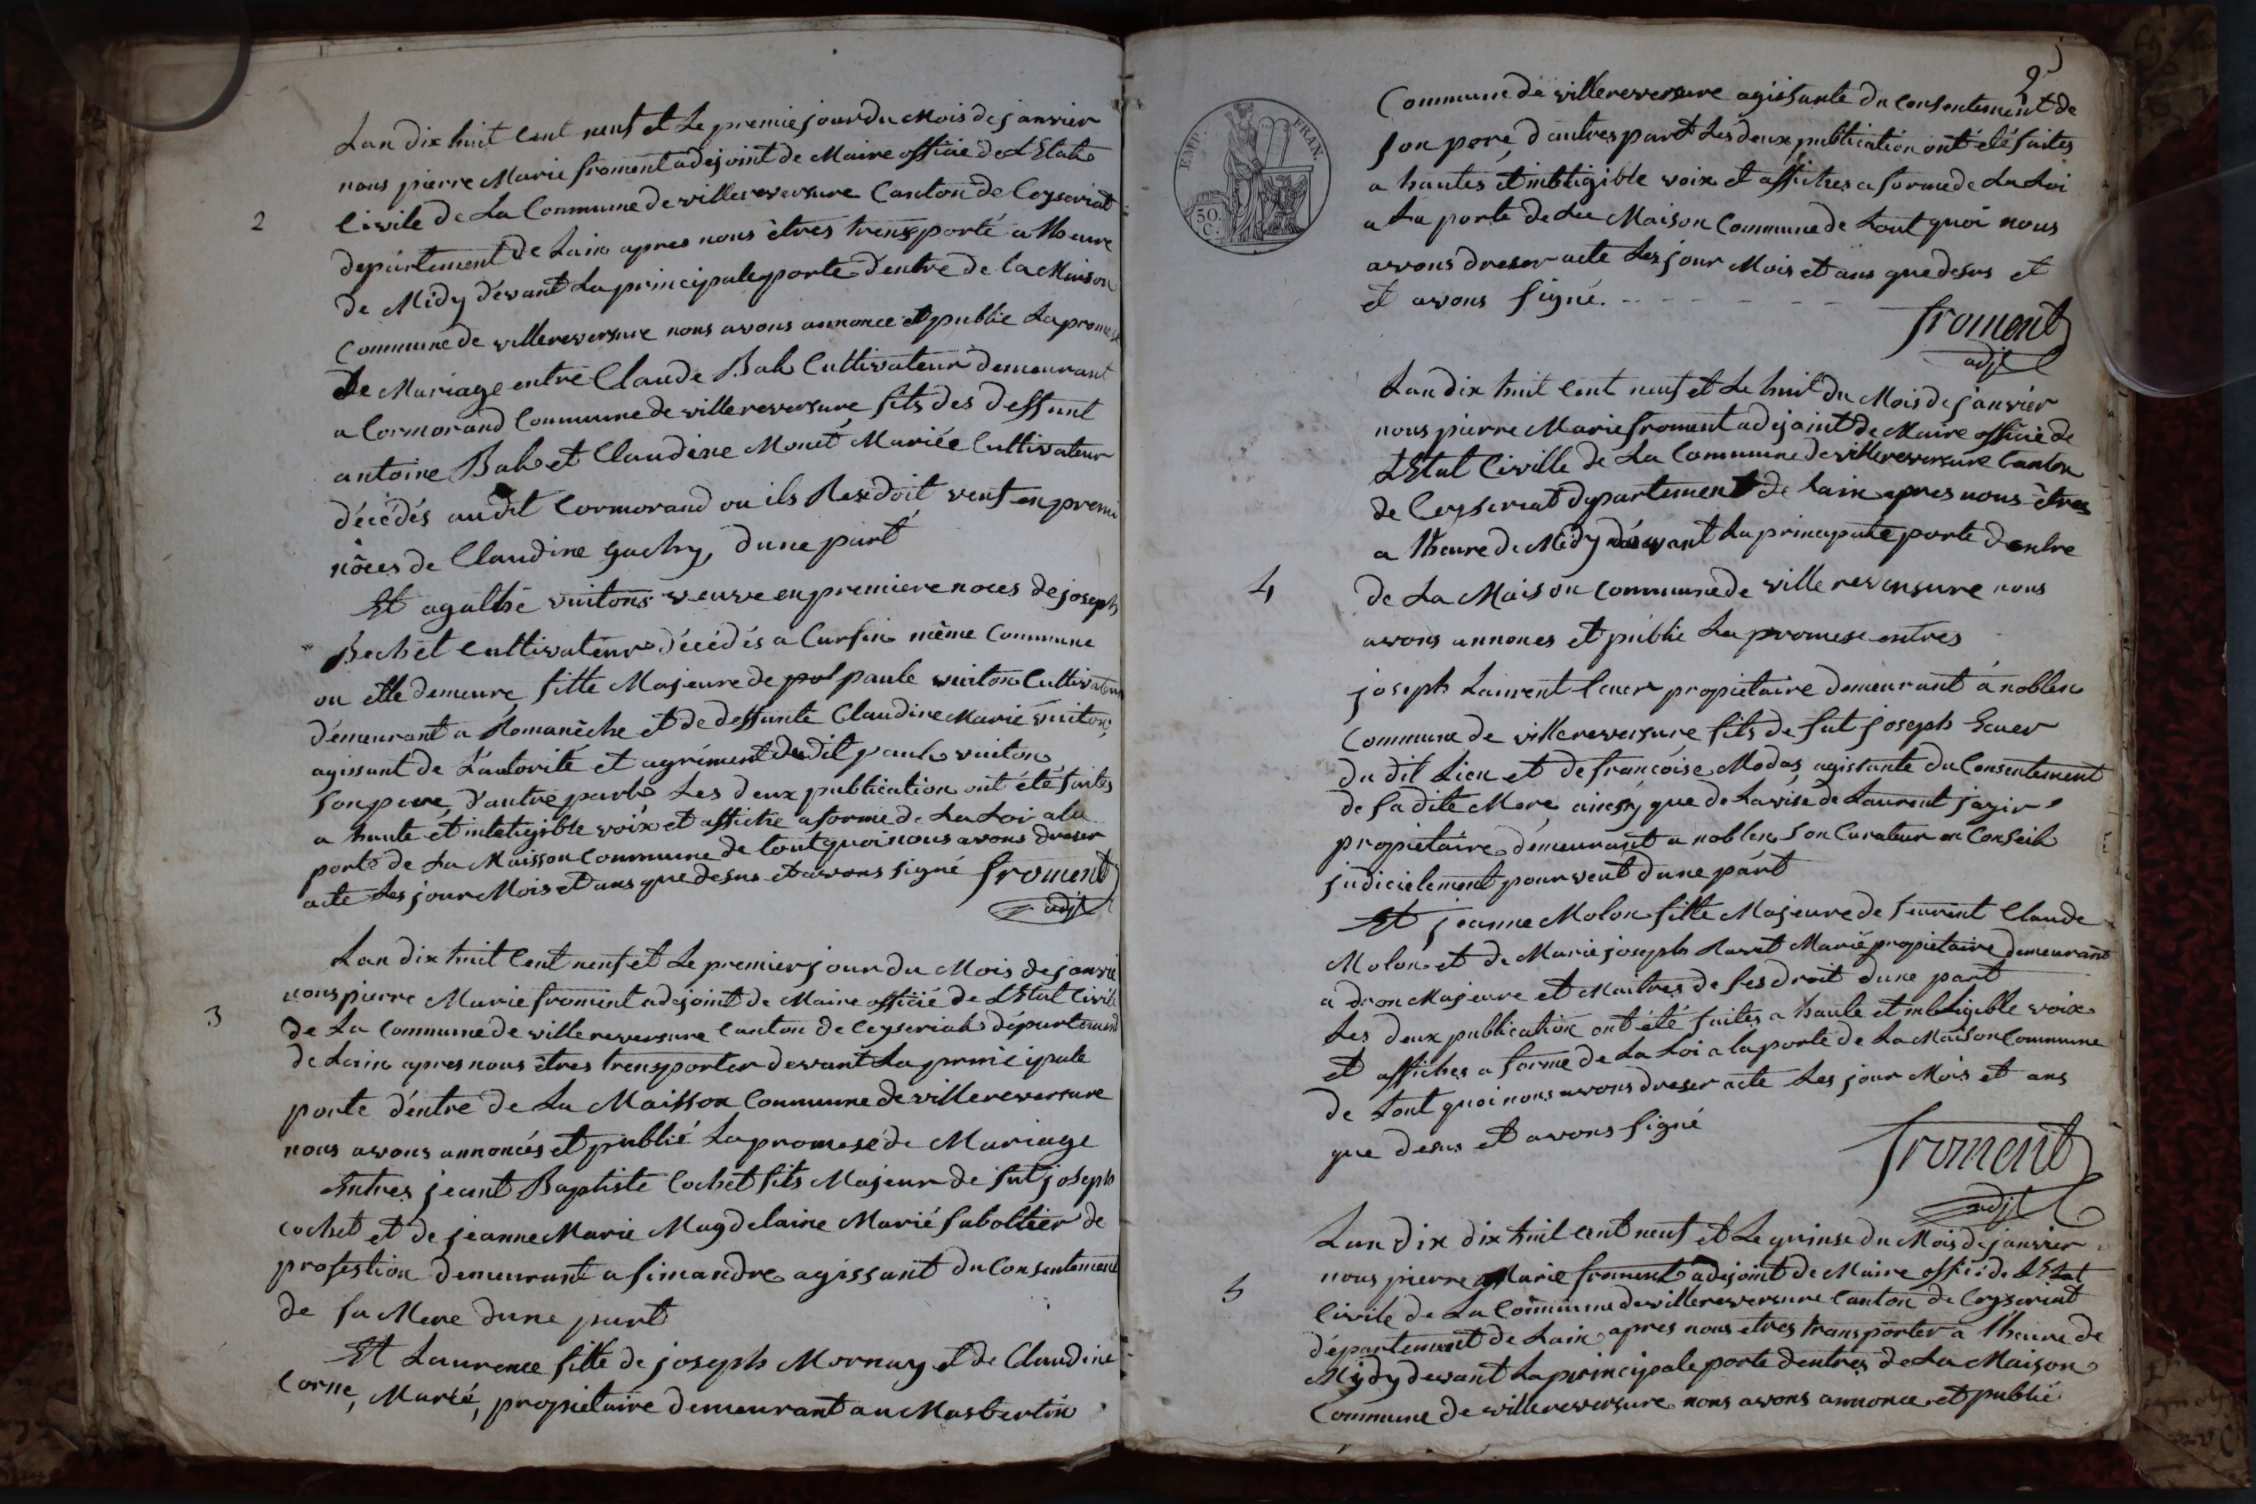 2
Lan dix huit Cent neuf et Le premie jour du Mois de janvier
nous pierre Marie froment adejoint de Maire officie de LEtat
Civile de La Commune de villereversure Canton de Ceyseriat
departement de Lain apres nous êtres transporté a lheure
de Midy devant La principale porte d'entre de la Maison
Commune de villereversure nous avons annonce et publie La promese
De Mariage entre Claude Bal Cultivateur demeurant
a Cormorand Commune de villereversure fils des deffunt
antoine Bal et Claudine Monet Mariée Cultivateur
décédés audit Cormorand ou ils Residoit veuf en premi
nôces de Claudine gachy, dune part
Et agathe vuiton veuve en premiere noces de joseph
Bechet Cultivateur décédés a Cursin même Commune
ou elle demeure fille Majeure de pol paule vuiton Cultivateur
démeurant a Romanêche et de deffunte Claudine Marie vuiton,
agissant de L'autorité et agrément dudit paule vuiton
son pere, d'autre part Les deux publication ont été faites
a haute et inteligible voix et affiche a forme de La Loi a la
porte de La Maisson Commune de tout quoi nous avons dreser
acte Les jour Mois et ans que desus et avons signé froment
adjt
3
Lan dix huit Cent neuf et Le premier jour du Mois de janvie
nous pierre Marie froment adejoint de Maire officié de LEtat Civile
de La Commune de villereversure Canton de Ceyseriat département
de Lain apres nous êtres transporter devant La principale
porte d'entre de La Maisson Commune de villereversure
nous avons annoncés et publié La promese de Mariage
Entres jeant Baptiste Cochet fils Majeur de fut joseph
cochet et de jeanne Marie Magdelaine Marié sabottier de
profestion demeurant a simandre agissant du Consentement
de sa Mere dune part
Et Laurence fille de joseph Mornay et de Claudine
Corne, Marié, propietaire demeurant au Masbertin
2
EMP. FRAN.
50. C.
Commune de villereversure agissante du consentement de
son pere, d'autres part Les deux publication ont été faites
a hautes et inteligible voix et affiches a forme de La Loi
a La porte de La Maison Commune de tout quoi nous
avons dreser acte Les jour Mois et ans que desus et
et avons signé.
froment
adjt
4
Lan dix huit Cent neuf et Le huit du Mois de janvier
nous pierre Marie froment adejoint de Maire officié de
LEtat Civille de La Commune de villereversure Canton
de Ceyseriat departement de Lain apres nous êtres
a lheure de Midy devant La principale porte dentre
de La Maison Commune de villereversure nous
avons annonces et publié La promese entres
joseph Laurent Cuer propietaire demeurant á noblen
Commune de villereversure fils de fut joseph Cuer
du dit Lieu et de francoise Modas, agistante du Consentement
de sa dite Mere, ainsy que de Lavise de Laurent jayir
propietaire demeurant a noblen son Curateur en Conseil
judicielement pourveut dune part
Et jeanne Molon fille Majeure de Claude
Molon et de Marie joseph Ravet Marié propietaire demeurant
a dron Majeure et Maitres de ses droit dune part
Les deux publication ont été faites a haute et inteligible voix
et affiches a forme de La Loi a la porte de La Maison Commune
de tout quoi nous avons dreser acte Les jour Mois et ans
que desus et avons signé
froment
adjt
5
Lan dix dix huit cent neuf et Le quinse du Mois de janvier
nous pierre Marie froment adejoint de Maire officié de LEtat
Civile de La Commune de villereversure Canton de Ceyseriat
département de Lain apres nous etres transporter a lheure de
Midy devant La principale porte dentres de La Maison
Commune de villereversure nous avons annonce et publié